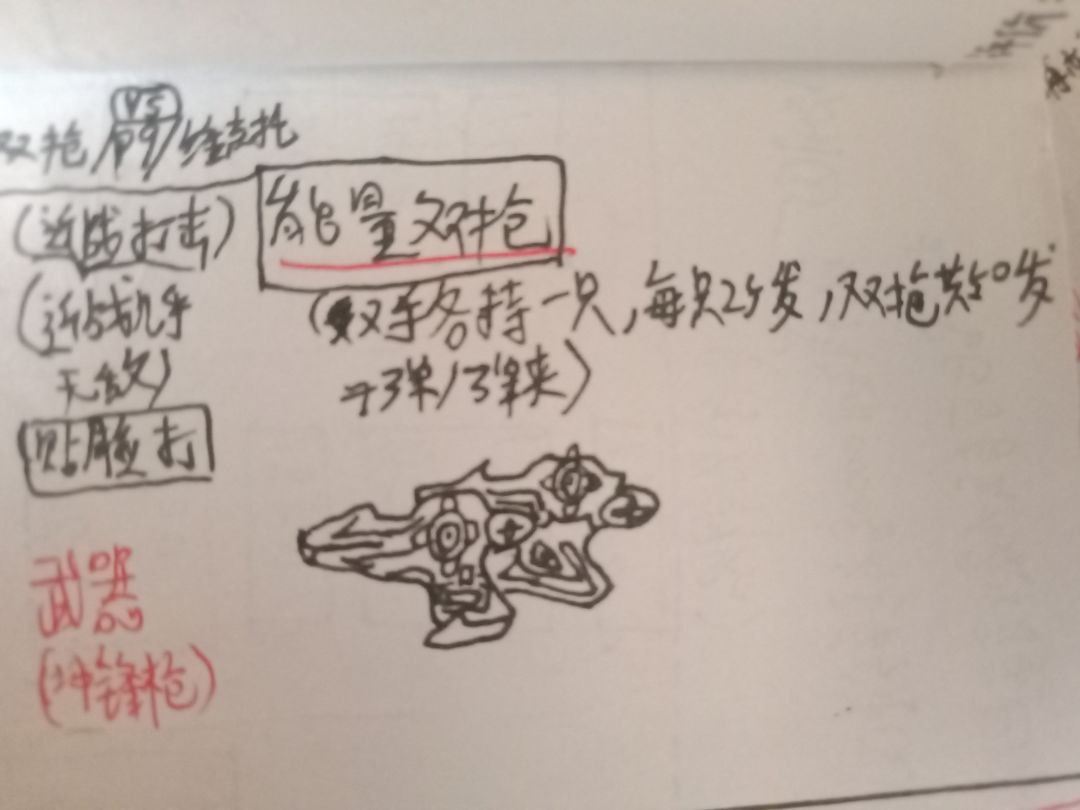 VS
双枪 维克托
(近战打击)
能量双枪
(近战几乎
无敌)
(双手各持一只,每只25发,双枪共50发
=弹/弹夹)
贴脸打
武器
(冲锋枪)